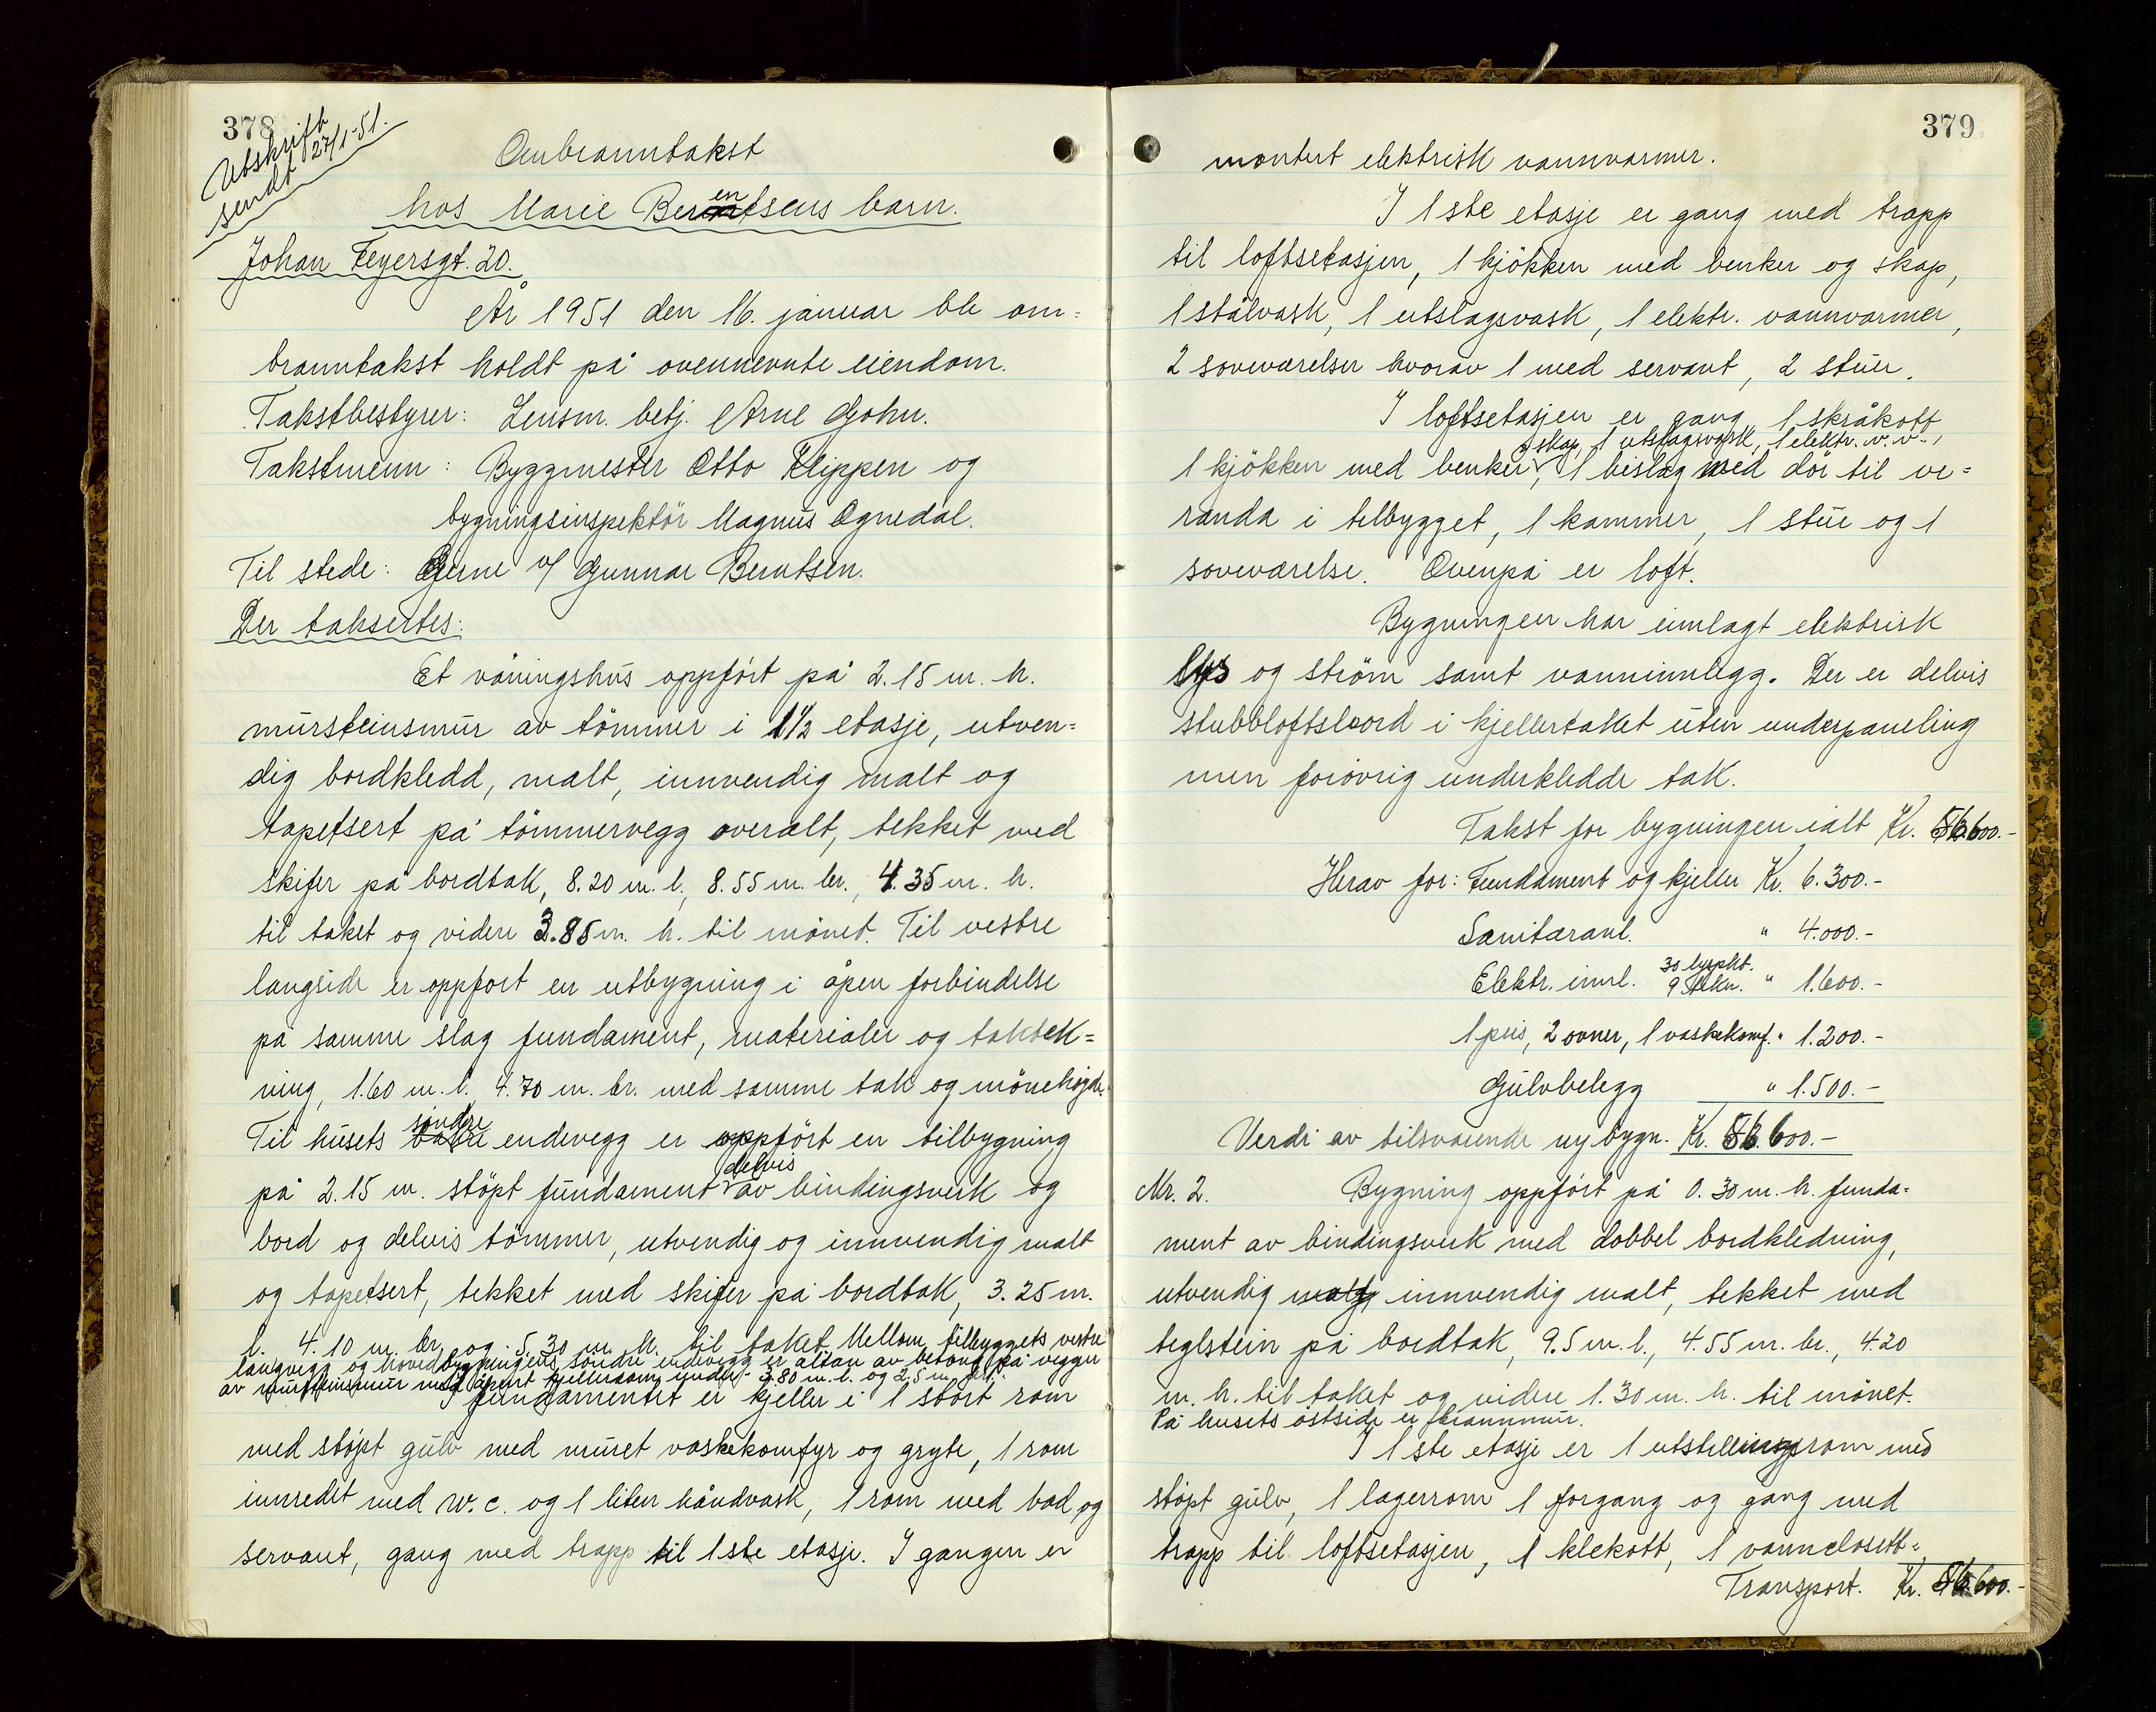 378
Utskrift
sendt 27/1-51.
Ombranntakst
hos Marie Berentsens barn.
Johan Feyersgt. 20.
År 1951 den 16. januar ble om=
branntakst holdt på ovennevnte eiendom.
Takstbestyrer: Lensm. betj. Arne Gohn.
Takstmenn: Byggmester Otto Klippen og
bygningsinspektör Magnus Ognedal.
Til stede: Eierne v/ Gunnar Berntsen.
Der taksertes:
Et våningshus oppfört på 2.15 m. h.
mursteinsmur av tömmer i 1 1/2 etasje, utven=
dig bordkledd, malt, innvendig malt og
tapetsert på tömmervegg overalt, tekket med
skifer på bordtak, 8.20 m. l., 8.55 m. br., 4.35 m. h.
til taket og videre 3.85 m. h. til mönet. Til vestre
langside er oppfört en utbygning i åpen forbindelse
på samme slag fundament, materialer og taktek=
ning, 1.60 m. l. 4.70 m. br. med samme tak og mönehöyde.
Til husets söndre endevegg er oppfört en tilbygning
på 2.15 m. stöpt fundament delvis av bindingsverk og
bord og delvis tömmer, utvendig og innvendig malt
og tapetsert, tekket med skifer på bordtak, 3.25 m.
l. 4.10 m. br. og 5.30 m. h. til taket. Mellom tilbyggets vestre
langvegg og hovedbygningens söndre endevegg er altan av betong på vegger
av mursteinsmur med åpent kjellerrom under - 3.80 m. l. og 2.5 m. br.
I fundamentet er kjeller i 1 stort rom
med stöpt gulv med muret vaskekomfyr og gryte, 1 rom
innredet med w.c. og 1 liten håndvask, 1 rom med bad og
servant, gang med trapp til 1ste etasje. I gangen er
379
montert elektrisk vannvarmer.
I 1ste etasje er gang med trapp
til loftsetasjen, 1 kjökken med benker og skap,
1 stålvask, 1 utslagsvask, 1 elektr. vannvarmer,
2 soveværelser hvorav 1 med servant, 2 stuer.
I loftsetasjen er gang, 1 skråkott,
1 kjökken med benker og skap, 1 utslagsvask, 1 elektr. v.v., 1 bislag med dör til ve=
randa i tilbygget, 1 kammer, 1 stue og 1
soveværelse. Ovenpå er loft.
Bygningen har innlagt elektrisk
lys og ström samt vanninnlegg. Der er delvis
stubbloftsbord i kjellertaket uten underpaneling
men forövrig underkledde tak.
Takst for bygningen ialt Kr. 86.600.-
Herav for: Fundament og kjeller Kr. 6.300.-
Sanitæranl. " 4.000.-
Elektr. innl. 30 lyspkt. 9 stikk. " 1.600.-
1 peis, 2 ovner, 1 vaskekomf. " 1.200.-
Gulvbelegg " 1.500.-
Verdi av tilsvarende ny bygn. Kr. 86.600.-
Nr. 2. Bygning oppfört på 0.30 m. h. funda=
ment av bindingsverk med dobbel bordkledning,
utvendig innvendig malt, tekket med
teglstein på bordtak, 9.5 m. l., 4.55 m. br., 4.20
m. h. til taket og videre 1.30 m. h. til mönet.
På husets östside er brannmur.
I 1ste etasje er 1 utstillingsrom med
stöpt gulv, 1 lagerrom 1 forgang og gang med
trapp til loftsetasjen, 1 klekott, 1 vannclosett=
Transport. Kr. 86.600.-